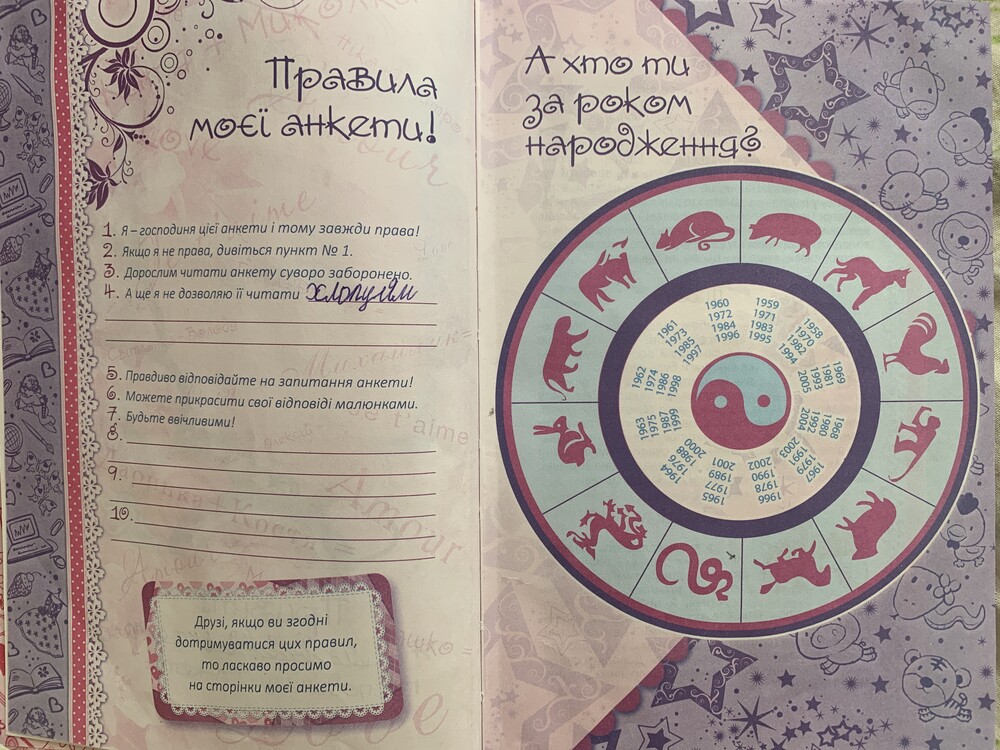 Правила
моєї анкети!
1. Я – господиня цієї анкети і тому завжди права!
2. Якщо я не права, дивіться пункт № 1.
3. Дорослим читати анкету суворо заборонено.
4. А ще я не дозволяю її читати хлопцям
5. Правдиво відповідайте на запитання анкети!
6. Можете прикрасити свої відповіді малюнками.
7. Будьте ввічливими!
8.
9.
10.
Друзі, якщо ви згодні
дотримуватися цих правил,
то ласкаво просимо
на сторінки моєї анкети.
А хто ти
за роком
народження?
1960
1972
1984
1996
1959
1971
1983
1995
1958
1970
1982
1994
1969
1981
1993
2005
1968
1980
1992
2004
1967
1979
1991
2003
1966
1978
1990
2002
1965
1977
1989
2001
1964
1976
1988
2000
1963
1975
1987
1999
1962
1974
1986
1998
1961
1973
1985
1997